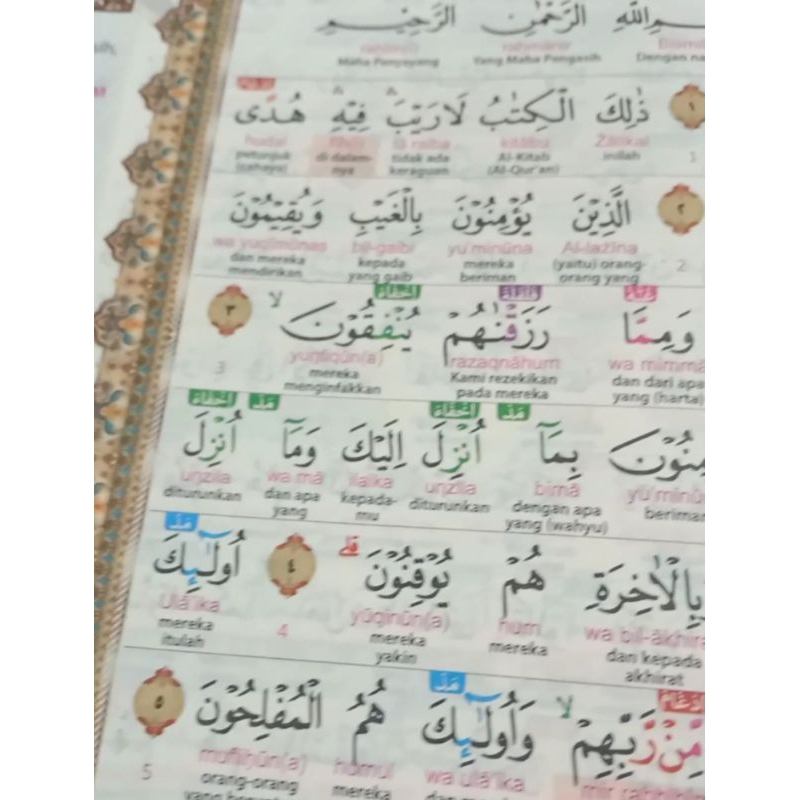 الرَّحْمٰنِ الرَّحِيْمِ
rahmānir rahīm(i)
Yang Maha Pengasih Maha Penyayang
١ ذٰلِكَ الْكِتٰبُ لَا رَيْبَ فِيْهِ هُدًى
1 Żālikal kitābu lā raiba fīhi hudal
inilah Al-Kitab (Al-Qur'an) tidak ada keraguan di dalam-nya petunjuk (cahaya)
٢ الَّذِيْنَ يُؤْمِنُوْنَ بِالْغَيْبِ وَيُقِيْمُوْنَ
2 Al-lażīna yu'minūna bil-gaibi wa yuqīmūnaṣ
(yaitu) orang-orang yang mereka beriman kepada yang gaib dan mereka mendirikan
وَمِمَّا رَزَقْنٰهُمْ يُنْفِقُوْنَ ۙ ٣
wa mimmā razaqnāhum yunfiqūn(a) 3
dan dari apa yang (harta) Kami rezekikan pada mereka mereka menginfakkan
بِمَآ اُنْزِلَ اِلَيْكَ وَمَآ اُنْزِلَ
bimā unzila ilaika wa mā unzila
dengan apa yang (wahyu) diturunkan kepada-mu dan apa yang diturunkan
بِالْاٰخِرَةِ هُمْ يُوْقِنُوْنَ ۗ ٤ اُولٰۤىِٕكَ
wa bil-ākhira hum yūqinūn(a) 4 Ulā'ika
dan kepada akhirat mereka mereka yakin mereka itulah
مِّنْ رَّبِّهِمْ ۙ وَاُولٰۤىِٕكَ هُمُ الْمُفْلِحُوْنَ ٥
wa ulā'ika humul mufliḥūn(a) 5
mereka orang-orang